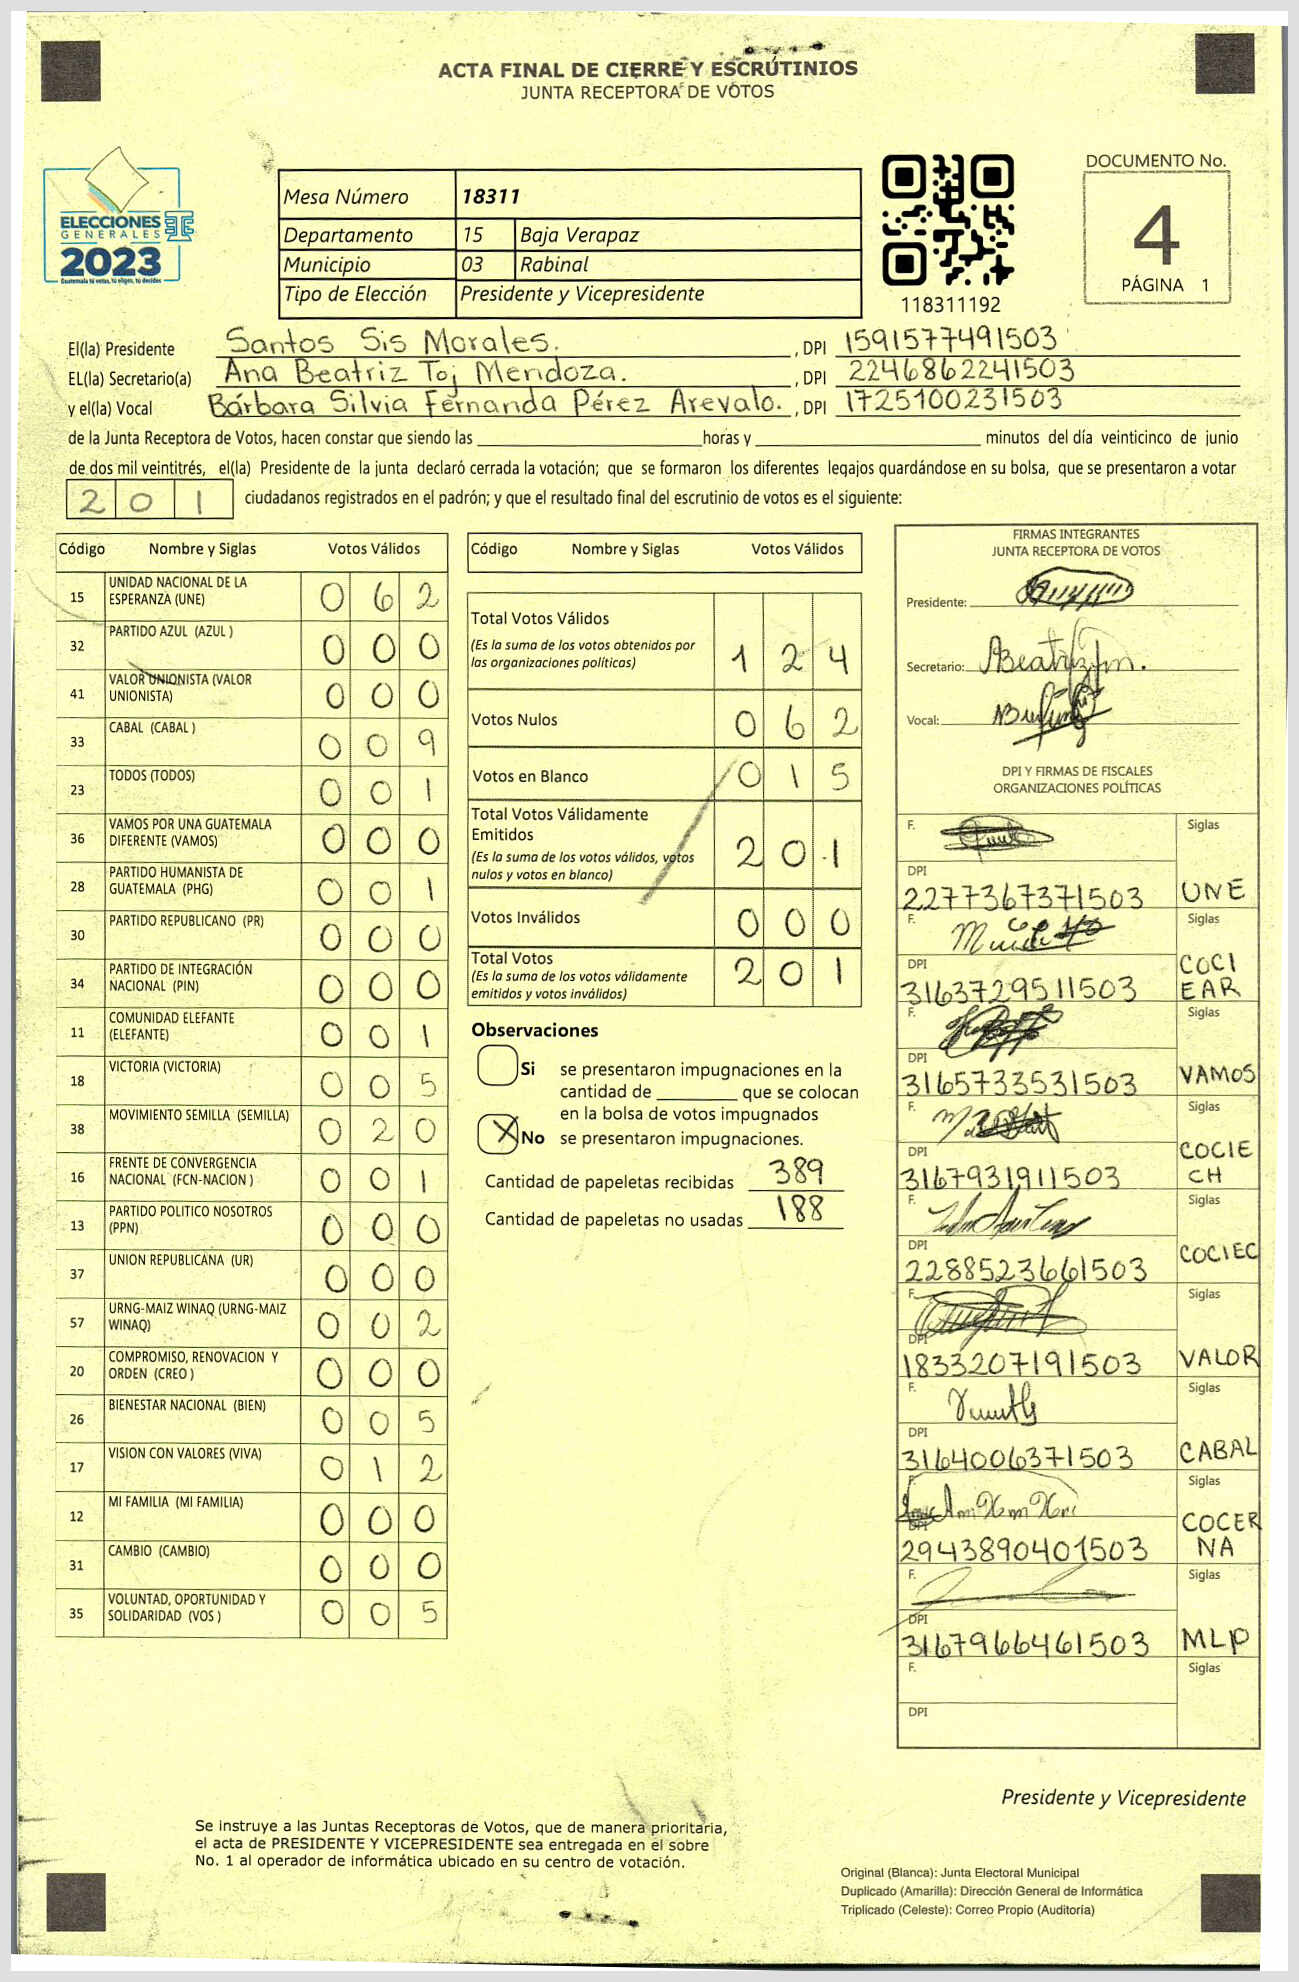 ACTA FINAL DE CIERRE Y ESCRUTINIOS
JUNTA RECEPTORA DE VOTOS
ELECCIONES
GENERALES
2023
Guatemala tú votas, tú eliges, tú decides
Mesa Número 18311
Departamento 15 Baja Verapaz
Municipio 03 Rabinal
Tipo de Elección Presidente y Vicepresidente
118311192
DOCUMENTO No.
4
PÁGINA 1
El(la) Presidente Santos Sis Morales. , DPI 1591577491503
EL(la) Secretario(a) Ana Beatriz Toj Mendoza. , DPI 2246862241503
y el(la) Vocal Bárbara Silvia Fernanda Pérez Arevalo. , DPI 1725100231503
de la Junta Receptora de Votos, hacen constar que siendo las horas y minutos del día veinticinco de junio
de dos mil veintitrés, el(la) Presidente de la junta declaró cerrada la votación; que se formaron los diferentes legajos guardándose en su bolsa, que se presentaron a votar
2 0 1 ciudadanos registrados en el padrón; y que el resultado final del escrutinio de votos es el siguiente:
Código Nombre y Siglas Votos Válidos
15 UNIDAD NACIONAL DE LA ESPERANZA (UNE) 0 6 2
32 PARTIDO AZUL (AZUL ) 0 0 0
41 VALOR UNIONISTA (VALOR UNIONISTA) 0 0 0
33 CABAL (CABAL ) 0 0 9
23 TODOS (TODOS) 0 0 1
36 VAMOS POR UNA GUATEMALA DIFERENTE (VAMOS) 0 0 0
28 PARTIDO HUMANISTA DE GUATEMALA (PHG) 0 0 1
30 PARTIDO REPUBLICANO (PR) 0 0 0
34 PARTIDO DE INTEGRACIÓN NACIONAL (PIN) 0 0 0
11 COMUNIDAD ELEFANTE (ELEFANTE) 0 0 1
18 VICTORIA (VICTORIA) 0 0 5
38 MOVIMIENTO SEMILLA (SEMILLA) 0 2 0
16 FRENTE DE CONVERGENCIA NACIONAL (FCN-NACION ) 0 0 1
13 PARTIDO POLITICO NOSOTROS (PPN) 0 0 0
37 UNION REPUBLICANA (UR) 0 0 0
57 URNG-MAIZ WINAQ (URNG-MAIZ WINAQ) 0 0 2
20 COMPROMISO, RENOVACION Y ORDEN (CREO ) 0 0 0
26 BIENESTAR NACIONAL (BIEN) 0 0 5
17 VISION CON VALORES (VIVA) 0 1 2
12 MI FAMILIA (MI FAMILIA) 0 0 0
31 CAMBIO (CAMBIO) 0 0 0
35 VOLUNTAD, OPORTUNIDAD Y SOLIDARIDAD (VOS ) 0 0 5
Código Nombre y Siglas Votos Válidos
Total Votos Válidos 1 2 4
(Es la suma de los votos obtenidos por
las organizaciones políticas)
Votos Nulos 0 6 2
Votos en Blanco 0 1 5
Total Votos Válidamente
Emitidos 2 0 1
(Es la suma de los votos válidos, votos
nulos y votos en blanco)
Votos Inválidos 0 0 0
Total Votos 2 0 1
(Es la suma de los votos válidamente
emitidos y votos inválidos)
Observaciones
Si se presentaron impugnaciones en la
cantidad de que se colocan
en la bolsa de votos impugnados
X No se presentaron impugnaciones.
Cantidad de papeletas recibidas 389
Cantidad de papeletas no usadas 188
FIRMAS INTEGRANTES
JUNTA RECEPTORA DE VOTOS
Presidente:
Secretario:
Vocal:
DPI Y FIRMAS DE FISCALES
ORGANIZACIONES POLÍTICAS
F. Siglas
DPI
2277367371503 UNE
F. Siglas
DPI
3163729511503 COCI EAR
F. Siglas
DPI
3165733531503 VAMOS
F. Siglas
DPI
3167931911503 COCIE CH
F. Siglas
DPI
2288523661503 COCIEC
F. Siglas
DPI
1833207191503 VALOR
F. Siglas
DPI
3164006371503 CABAL
F. Siglas
DPI
2943890401503 COCER NA
F. Siglas
DPI
3167966461503 MLP
F. Siglas
DPI
Presidente y Vicepresidente
Se instruye a las Juntas Receptoras de Votos, que de manera prioritaria,
el acta de PRESIDENTE Y VICEPRESIDENTE sea entregada en el sobre
No. 1 al operador de informática ubicado en su centro de votación.
Original (Blanca): Junta Electoral Municipal
Duplicado (Amarilla): Dirección General de Informática
Triplicado (Celeste): Correo Propio (Auditoría)